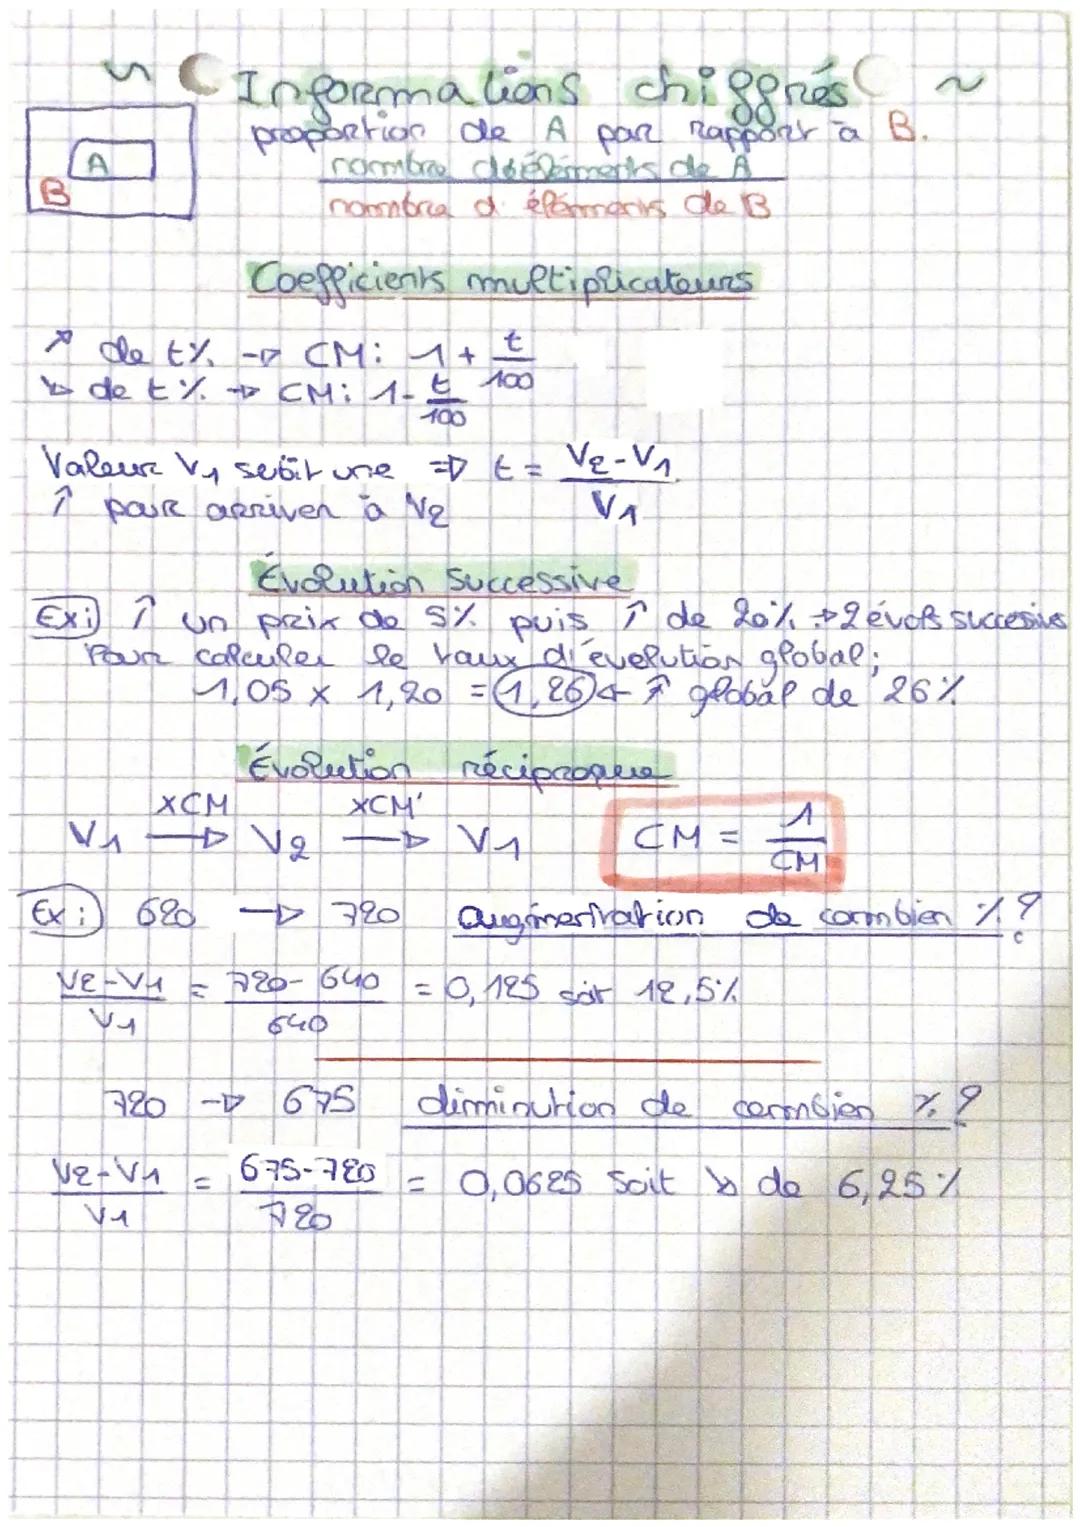 ~ Informations chiffrés ~
proportion de A par rapport à B.
A
B
nombre d'éléments de A
nombre d'éléments de B
Coefficients multiplicateurs
↗ de t% → CM: 1 + t/100
↘ de t% → CM: 1 - t/100
Valeur V1 subit une ⇒ t = V2-V1/V1
↑ pour arriver à V2
Évolution Successive
Ex: ↑ un prix de 5% puis ↑ de 20% → 2 évols succesives
Pour calculer le taux d'évolution global;
1,05 x 1,20 = 1,26 ← ↗ global de 26%
Évolution réciproque
xCM xCM'
V1 → V2 → V1 CM = 1/CM
Ex: 620 → 720 augmentation de combien %?
V2-V1/V1 = 720-640/640 = 0,125 soit 12,5%
720 → 675 diminution de combien %?
V2-V1/V1 = 675-720/720 = 0,0625 Soit ↘ de 6,25%